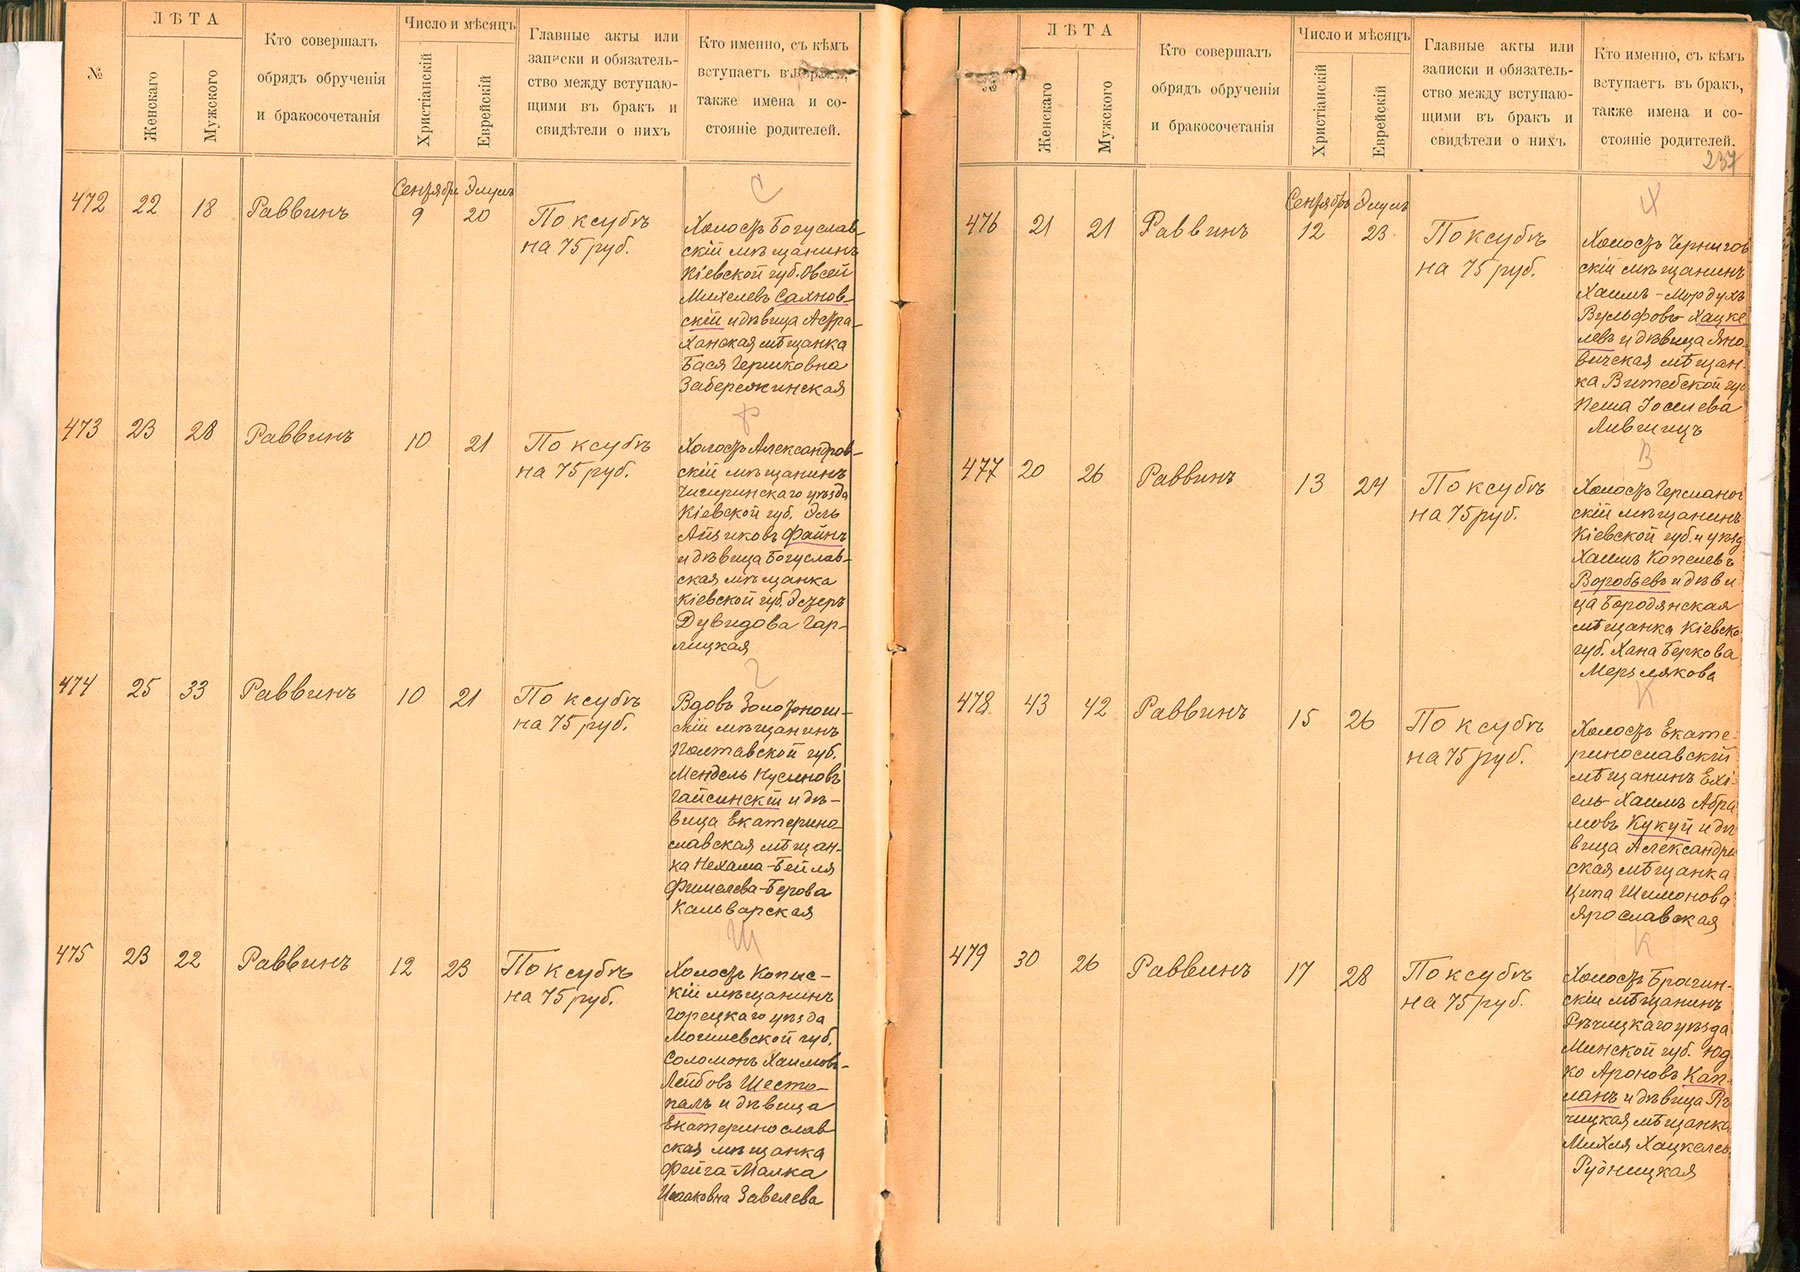 №
ЛѢТА
Женскаго
Мужского
Кто совершалъ
обрядъ обрученія
и бракосочетанія
Число и мѣсяцъ
Христіанскій
Еврейскій
Главные акты или
записки и обязатель-
ство между вступаю-
щими въ бракъ и
свидѣтели о нихъ
Кто именно, съ кѣмъ
вступаетъ въ бракъ,
также имена и со-
стояніе родителей.
472
22
18
Раввинъ
Сентябрь
9
Элулъ
20
По ксубѣ
на 75 руб.
С
Холостъ Богуслав-
скій мѣщанинъ
Кіевской губ. Овсей
Михелевъ Сахнов-
скій и дѣвица Астра-
ханская мѣщанка
Бася Гершковна
Забережинская
473
23
28
Раввинъ
10
21
По ксубѣ
на 75 руб.
Ф
Холостъ Александров-
скій мѣщанинъ
Чигиринскаго уѣзда
Кіевской губ. Эль
Айзиковъ Файнъ
и дѣвица Богуслав-
ская мѣщанка
Кіевской губ. Эстеръ
Дувидова Гар-
лицкая
474
25
33
Раввинъ
10
21
По ксубѣ
на 75 руб.
Г
Вдовъ Золотонош-
скій мѣщанинъ
Полтавской губ.
Мендель Нусиновъ
Гайсинскій и дѣ-
вица Екатерино-
славская мѣщан-
ка Нехама-Бейля
Фишелева-Берова
Кальварская
475
23
22
Раввинъ
12
23
По ксубѣ
на 75 руб.
Ш
Холостъ Копыс-
кій мѣщанинъ
Горецкаго уѣзда
Могилевской губ.
Соломонъ Хаимовъ-
Лейбовъ Шесто-
палъ и дѣвица
Екатеринослав
ская мѣщанка
Фейга-Малка
Исааковна Завелева
ЛѢТА
Женскаго
Мужского
Кто совершалъ
обрядъ обрученія
и бракосочетанія
Число и мѣсяцъ
Христіанскій
Еврейскій
Главные акты или
записки и обязатель-
ство между вступаю-
щими въ бракъ и
свидѣтели о нихъ
Кто именно, съ кѣмъ
вступаетъ въ бракъ,
также имена и со-
стояніе родителей.
237
476
21
21
Раввинъ
Сентябрь
12
Элулъ
23
По ксубѣ
на 75 руб.
Х
Холостъ Чернигов
скій мѣщанинъ
Хаимъ-Мордухъ
Вульфовъ Хацке
левъ и дѣвица Яно
вичская мѣщан-
ка Витебской губ
Пеша Іоселева
Лившицъ
477
20
26
Раввинъ
13
24
По ксубѣ
на 75 руб.
В
Холостъ Германов
скій мѣщанинъ
Кіевской губ. и уѣзд
Хаимъ Копелевъ
Воробьевъ и дѣви
ца Бородянская
мѣщанка Кіевско
губ. Хана Беркова
Мерзлякова
478
43
42
Раввинъ
15
26
По ксубѣ
на 75 руб.
К
Холостъ Екате-
ринославскій
мѣщанинъ Ехі-
ель-Хаимъ Абра
мовъ Кукуй и дѣ
вица Александрі
ская мѣщанка
Ципа Шимонова
Ярославская
479
30
26
Раввинъ
17
28
По ксубѣ
на 75 руб.
К
Холостъ Брагин-
скій мѣщанинъ
Рѣчицкаго уѣзда
Минской губ. Юд
ко Ароновъ Кап-
ланъ и дѣвица Рѣ
чицкая мѣщанка
Михля Хацкелев
Рудницкая